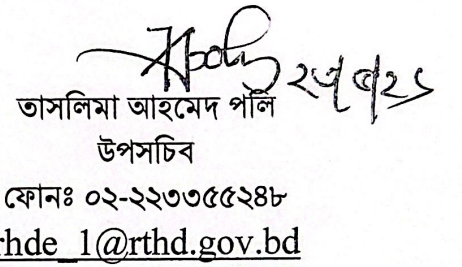 তাসলিমা আহমেদ পলি
উপসচিব
ফোনঃ ০২-২২৩৩৫৫২৪৮
rhde_1@rthd.gov.bd